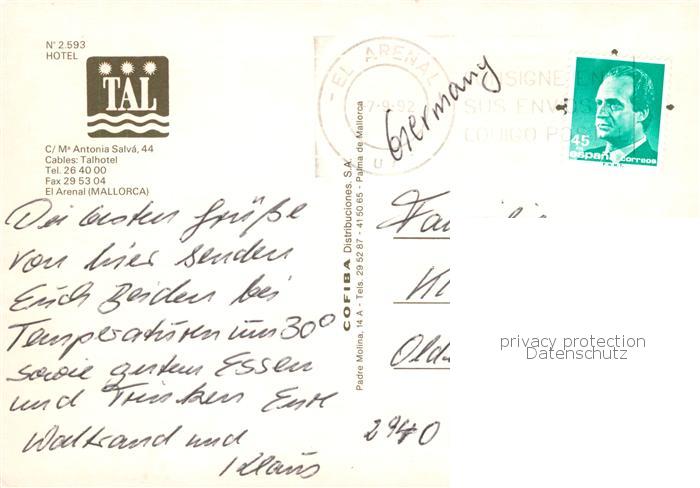 Nº 2.593
HOTEL
TAL
C/ Mª Antonia Salvá, 44
Cables: Talhotel
Tel. 26 40 00
Fax 29 53 04
El Arenal (MALLORCA)
Die besten Grüße
von hier senden
Euch Beiden bei
Temperaturen um 30°
sowie guten Essen
und Trinken Eure
Waltraud und
Klaus
COFIBA Distribuciones, S.A.
Padre Molina, 14 A - Tels. 29 52 87 - 41 50 65 - Palma de Mallorca
- EL ARENAL -
-7-9-92
Germany
SIGNE EN
SUS ENV
CODIGO POS
45
españa correos
Familie
Old
privacy protection
Datenschutz